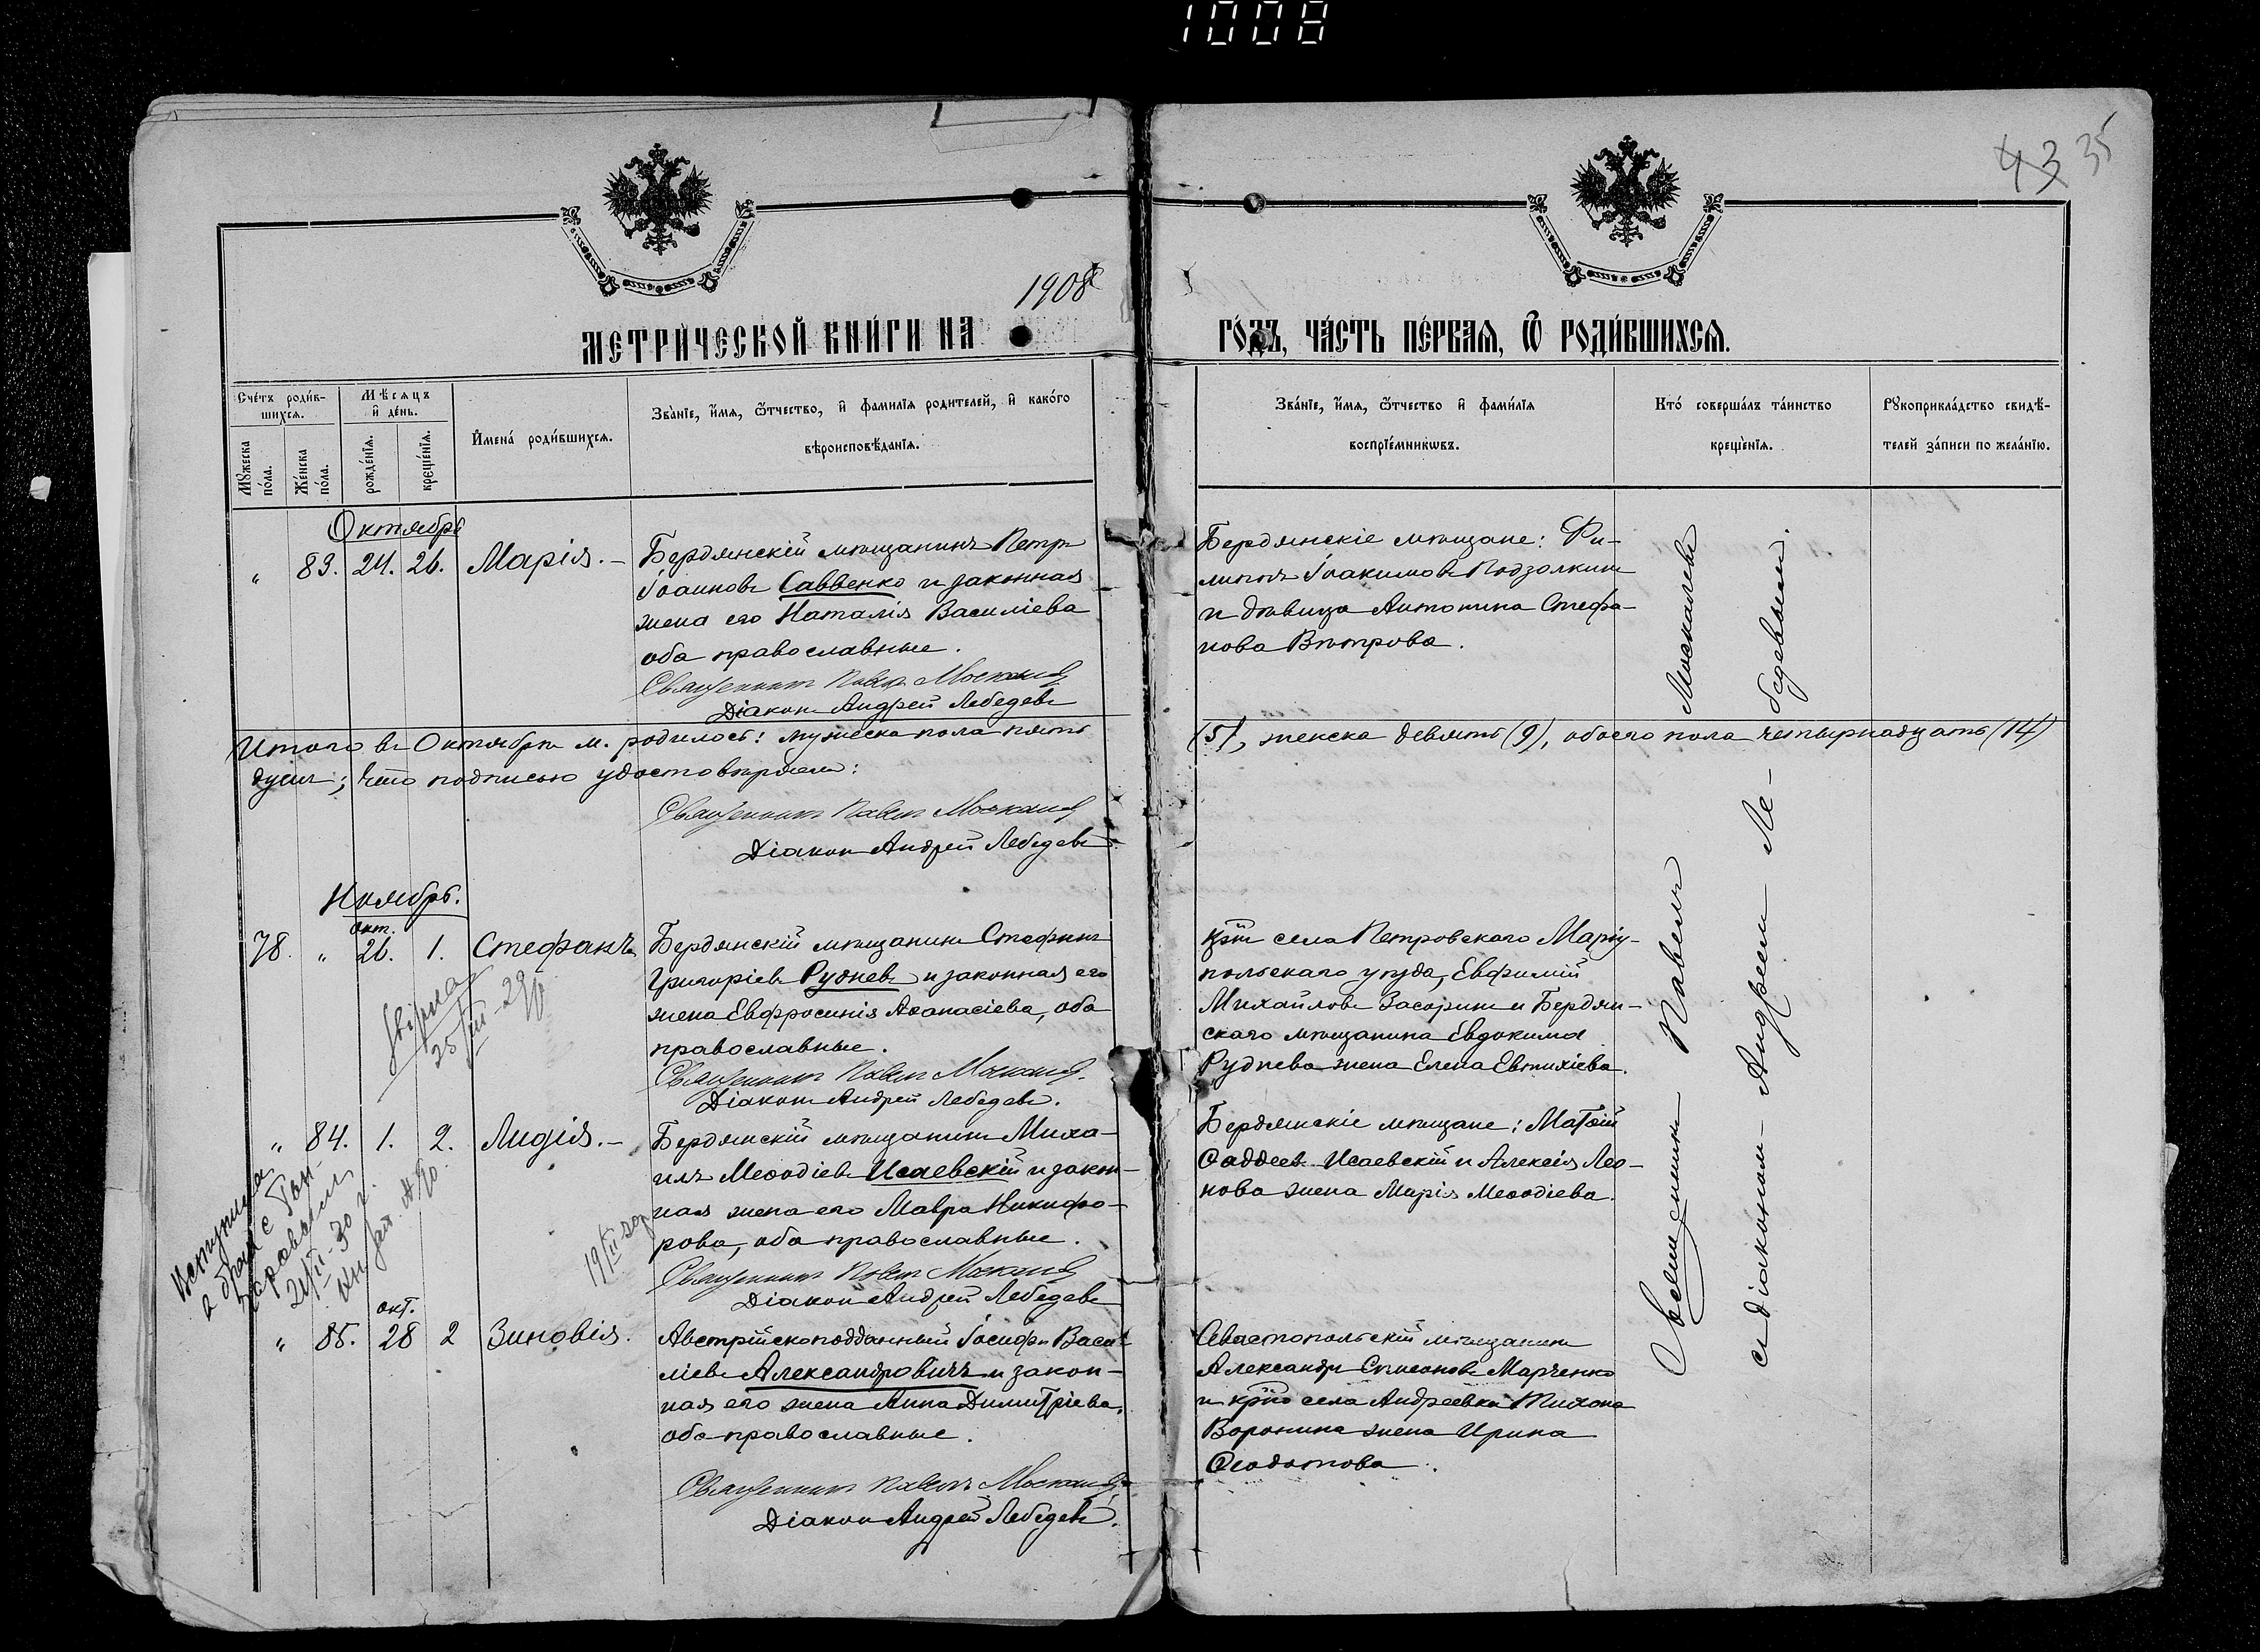 1008
43 35
1908
МЕТРИЧЕСКОЙ КНИГИ НА
ГОДЪ, ЧАСТЬ ПЕРВАЯ, Ѡ РОДИВШИХСЯ.
Счетъ родившихся.
Мѣсяцъ и день.
Мужеска пола.
Женска пола.
рожденія.
крещенія.
Имена родившихся.
Званіе, имя, отчество, и фамилія родителей, и какого
вѣроисповѣданія.
Званіе, имя, отчество и фамилія
воспріемниковъ.
Кто совершалъ таинство
крещенія.
Рукоприкладство свидѣ-
телей записи по желанію.
Октябрь
" 83. 24. 26. Марія.-
Бердянскій мѣщанинъ Петръ
Іоанновъ Саввенко и законная
жена его Наталія Василіева
оба православные.
Священникъ Павелъ Москалевъ
Діаконъ Андрей Лебедевъ
Бердянскіе мѣщане: Фи-
липпъ Іоакимовъ Подзолкинъ
и дѣвица Антонина Стефа-
нова Вѣтрова.
Итого въ Октябрѣ м. родилось: мужеска пола пять
(5), женска девять (9), обоего пола четырнадцать (14)
душъ; что подписью удостовѣряемъ:
Священникъ Павелъ Москалевъ
Діаконъ Андрей Лебедевъ
Ноябрь.
окт.
78. " 26. 1. Стефанъ
25/III-29
Бердянскій мѣщанинъ Стефанъ
Григоріевъ Рудневъ и законная его
жена Евфросинія Аѳанасіева, оба
православные.
Священникъ Павелъ Москалевъ.
Діаконъ Андрей Лебедевъ.
села Петровскаго Маріу-
польскаго уѣзда, Евфимій
Михайловъ Засоринъ и Бердян-
скаго мѣщанина Евдокима
Руднева жена Елена Евтихіева.
" 84. 1. 2. Лидія.-
Вступила
в бракъ с
21/II-30 г.
19/II
Бердянскій мѣщанинъ Миха-
илъ Меѳодіевъ Исаевскій и закон-
ная жена его Мавра Никифо-
рова, оба православные.
Священникъ Павелъ Москалевъ
Діаконъ Андрей Лебедевъ
Бердянскіе мѣщане: Матѳій
Ѳаддеевъ Исаевскій и Алексія Лео-
нова жена Марія Меѳодіева.
окт.
" 85. 28 2 Зиновія.
Австрійскоподданный Іосифъ Васи-
ліевъ Александровичъ и закон-
ная его жена Анна Димитріева,
оба православные.
Священникъ Павелъ Москалевъ
Діаконъ Андрей Лебедевъ.
Севастопольскій мѣщанинъ
Александръ Симеоновъ Марченко
и села Андреевки Тихона
Воронина жена Ирина
Ѳеодотова.
Священникъ Павелъ Москалевъ
съ діакономъ Андреемъ Ле-
бедевымъ.